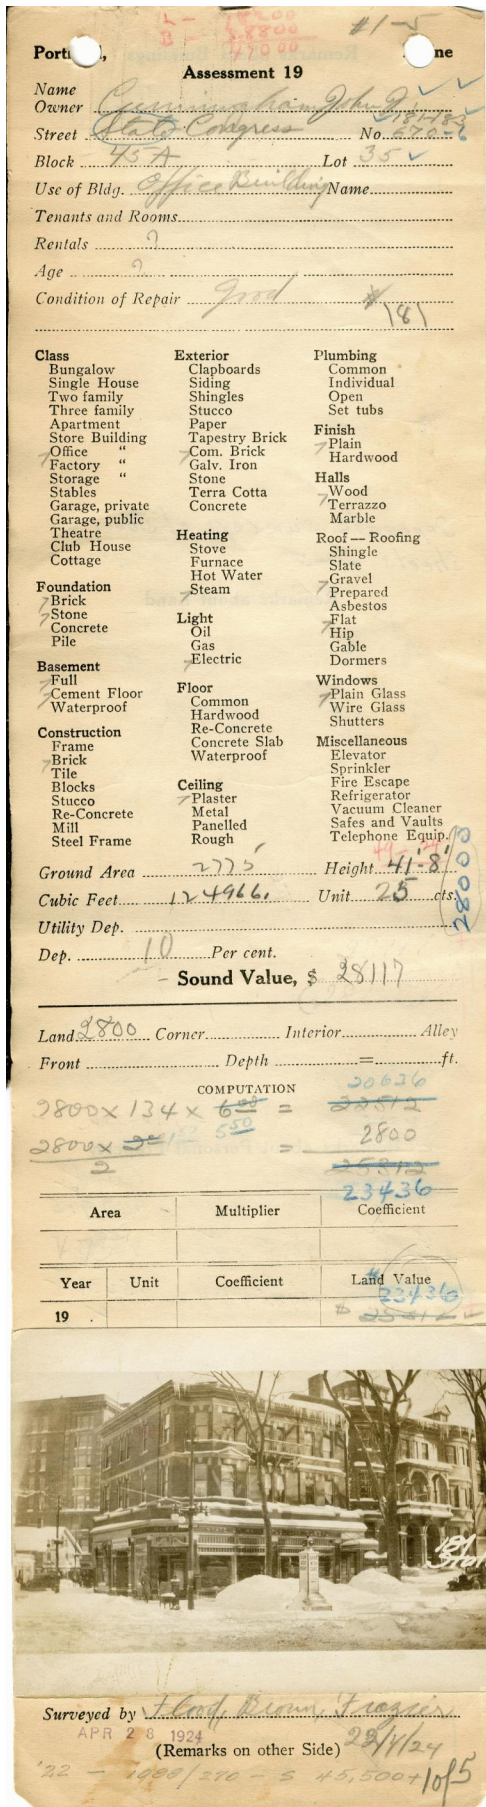 L - 18200
B - 28800
47000
#1-5
Portl , ne
Assessment 19
Name
Owner Cunningham, John J.
Street State Congress No. 181-183 670-6
Block 45 A Lot 35
Use of Bldg. Office Building Name
Tenants and Rooms
Rentals ?
Age ?
Condition of Repair Good
181
Class
Bungalow
Single House
Two family
Three family
Apartment
Store Building
Office "
Factory "
Storage "
Stables
Garage, private
Garage, public
Theatre
Club House
Cottage
Foundation
Brick
Stone
Concrete
Pile
Basement
Full
Cement Floor
Waterproof
Construction
Frame
Brick
Tile
Blocks
Stucco
Re-Concrete
Mill
Steel Frame
Exterior
Clapboards
Siding
Shingles
Stucco
Paper
Tapestry Brick
Com. Brick
Galv. Iron
Stone
Terra Cotta
Concrete
Heating
Stove
Furnace
Hot Water
Steam
Light
Oil
Gas
Electric
Floor
Common
Hardwood
Re-Concrete
Concrete Slab
Waterproof
Ceiling
Plaster
Metal
Panelled
Rough
Plumbing
Common
Individual
Open
Set tubs
Finish
Plain
Hardwood
Halls
Wood
Terrazzo
Marble
Roof — Roofing
Shingle
Slate
Gravel
Prepared
Asbestos
Flat
Hip
Gable
Dormers
Windows
Plain Glass
Wire Glass
Shutters
Miscellaneous
Elevator
Sprinkler
Fire Escape
Refrigerator
Vacuum Cleaner
Safes and Vaults
Telephone Equip.
Ground Area 2775 Height 41'-8"
Cubic Feet 124966. Unit 25 cts.
28000
Utility Dep.
Dep. 10 Per cent.
Sound Value, $ 28117
Land 2800 Corner Interior Alley
Front Depth = ft.
COMPUTATION
20636
2800 x 134 x 6.00 = 22512
5 50
2800 x 2.00 1.50 = 2800
2
25312
23436
Area Multiplier Coefficient
Year Unit Coefficient Land Value
23436
19 . $ 25312
184
State
Surveyed by Flood, Brown, Frazier
APR 28 1924
22/4/24
(Remarks on other Side)
'22 - 1088/270 - $ 45,500+
1 of 5